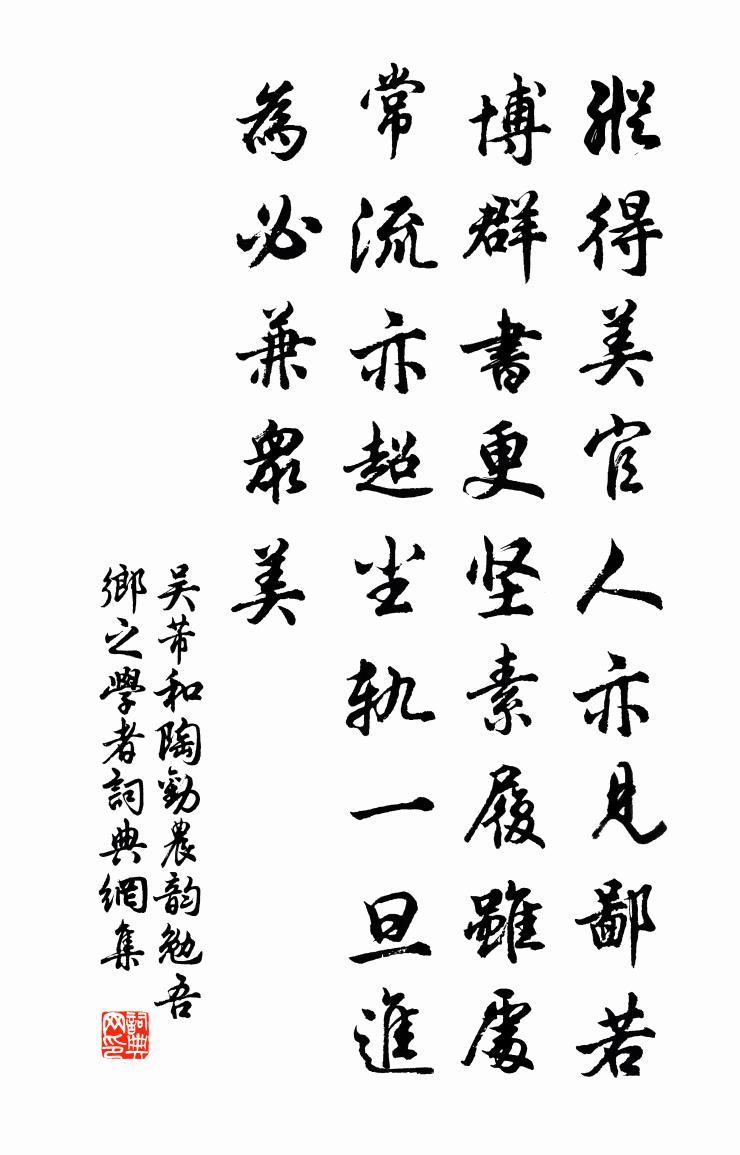 縱得美官人亦見鄙若
博群書更坚素履雖處
常流亦超尘軌一旦進
為必兼眾美
吴芾和陶勸農韵勉吾
鄉之學者詞典網集
詞典网印